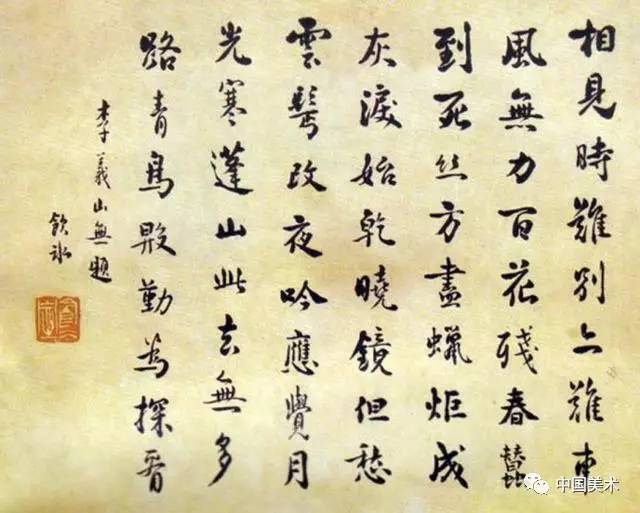 相見時難別亦難東
風無力百花殘春蠶
到死丝方盡蠟炬成
灰淚始乾曉鏡但愁
雲鬢改夜吟應覺月
光寒蓬山此去無多
路青鳥殷勤為探看
李義山無題
飲冰
中国美术